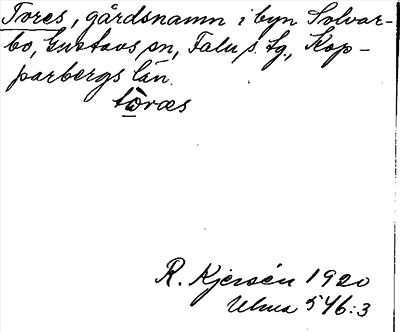 Tores, gårdsnamn i byn Solvar-
bo, Gustavs sn, Falu s. tg., Kop-
parbergs län.
tòræs
R. Kjersén 1920
Ulma 546:3